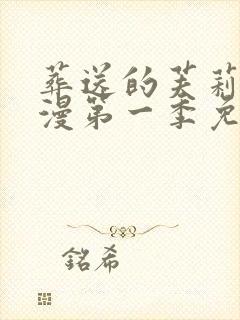 葬送的芙莉
漫第一季免
铭希